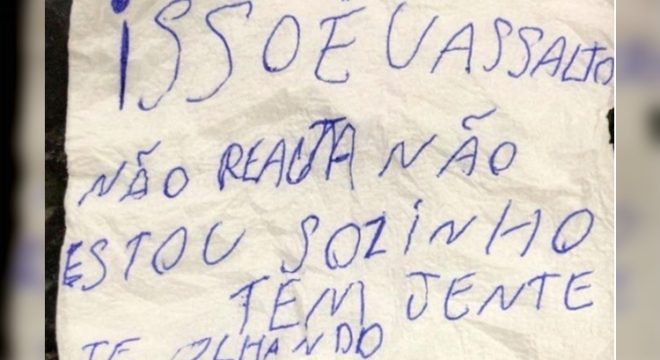 ISSO É UASSALTO
NÃO REAGTA NÃO
ESTOU SOZINHO
TEM JENTE
TE OLHANDO